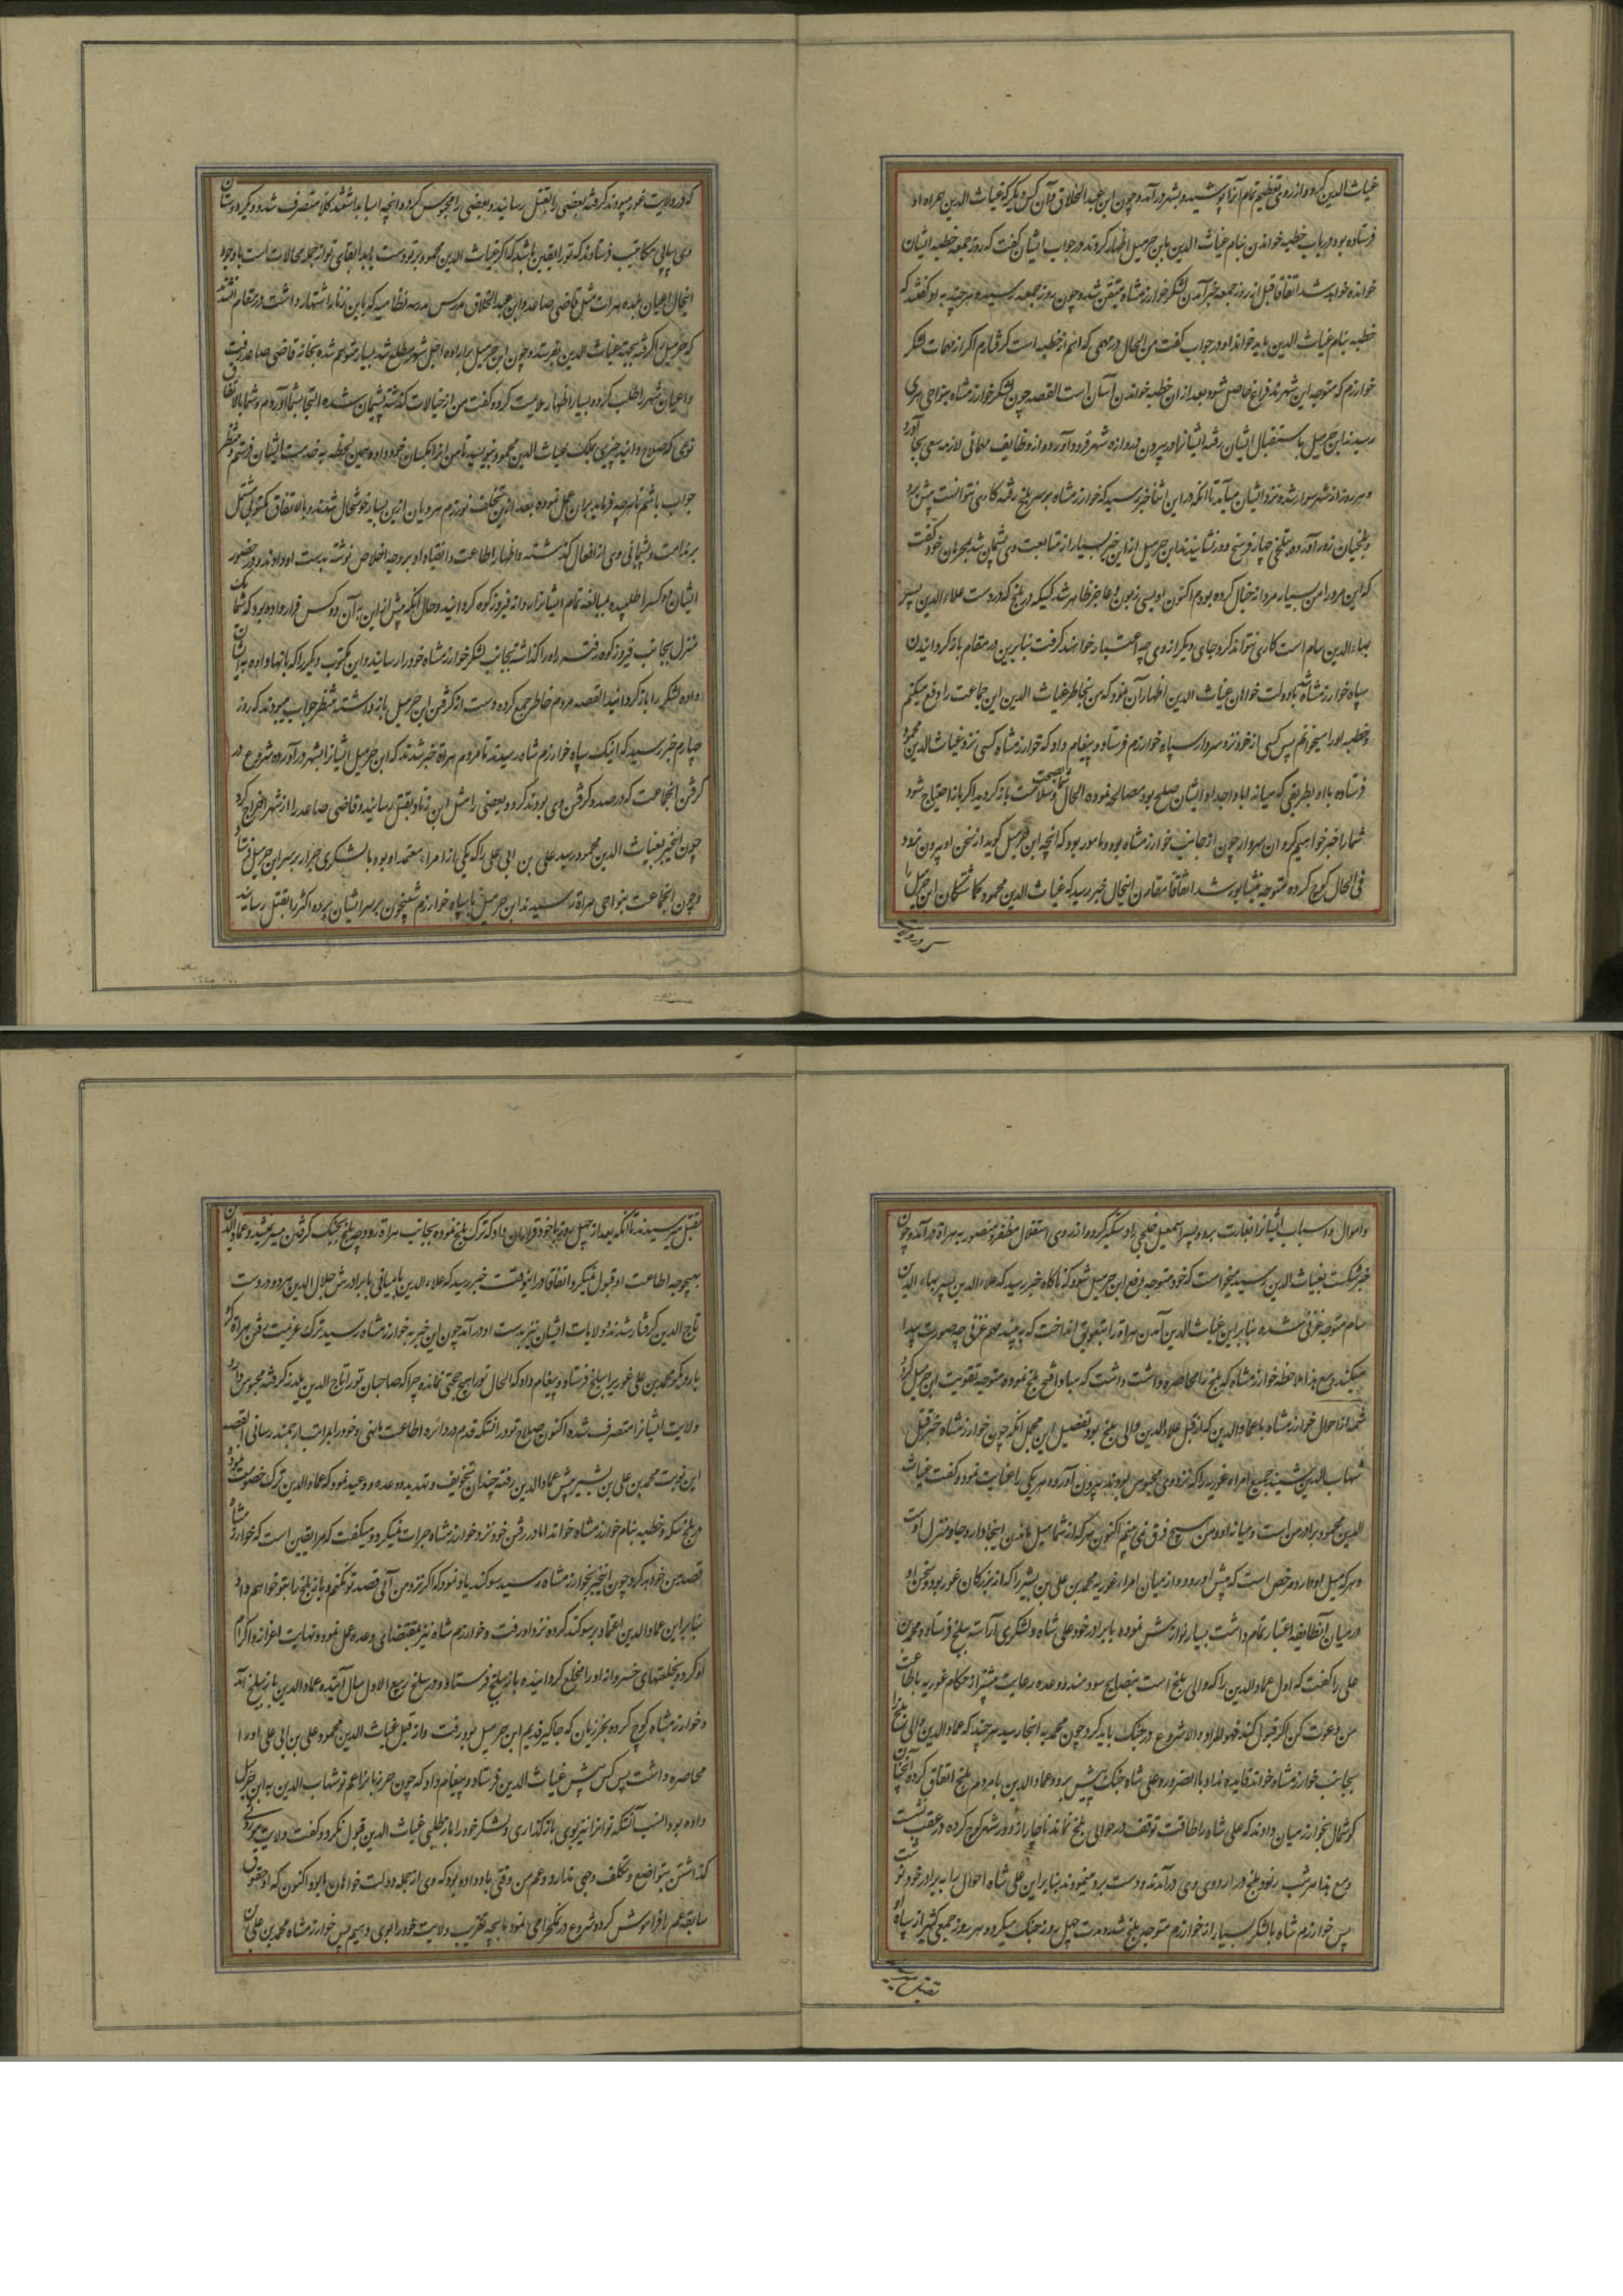 غیاث الدین کرد و از روی تعظیم تمام آنرا پوشیده بشهر درآمد و چون ابن عبد الخلاق و آن کس دیگر که غیاث الدین همراه او
فرستاده بود در باب خطبه خواندن بنام غیاث الدین بابن خرمیل اظهار کردند در جواب ایشان گفت که روز جمعه خطبه ایشان
خوانده خواهد شد اتفاقا قبل از روز جمعه خبر آمدن لشکر خوارزمشاه متیقن شد و چون روز جمعه رسید هر چند به او گفتند که
خطبه بنام غیاث الدین باید خواند او در جواب گفت من الحال در مهمی که اهم از خطبه است گرفتارم اگر از مهمات لشکر
خوارزم که متوجه این شهرند فراغ حاصل شود بعد از ان خطبه خواندن آسان است القصه چون لشکر خوارزمشاه بنواحی هری
رسیدند ابن خرمیل باستقبال ایشان رفته ایشانرا در بیرون دروازه شهر فرود آورد و از وظایف مهمانی لازمه سعی بجا آورد
و هر روز از شهر سوار شده نزد ایشان میآمد تا آنکه در این اثنا خبر رسید که خوارزمشاه بر سر بلخ رفته کاری نتوانست پیش برد
و بلخیان زور آورده بیلخی چهار فرسخ دور نشانیدند ابن خرمیل از این خبر بسیار از متابعت وی پشیمان شد بمحرمان خود گفت
که این مرد را من بسیار مردانه خیال کرده بودم اکنون او بسی زبون و عاجز ظاهر شد کسیکه در بلخ که در دست علاء الدین پسر
بهاء الدین سام است کاری نتواند کرد جای دیگر از وی چه اعتبار خواهند گرفت بنابرین در مقام باز گردانیدن
سپاه خوارزمشاه شده با دولت خواهان غیاث الدین اظهار آن نمود که من بخاطر غیاث الدین این جماعت را دفع میکنم
و خطبه او را میخوانم پس کسی از خود نزد سردار سپاه خوارزم فرستاد و پیغام داد که خوارزمشاه کسی نزد غیاث الدین محمود
فرستاده با او بطریقی که میانه ابا و اجداد ایشان صلح بود مصالحه نموده الحال شما بصحت و سلامت باز گردید اگر باز احتیاج شود
شما را خبر خواهیم کرد ان سردار چون از جانب خوارزمشاه بود و مامور بود که انچه ابن خرمیل گوید از سخن او بیرون نرود
فی الحال کوچ کرده متوجه نیشابور شد اتفاقا مقارن اینحال خبر رسید که غیاث الدین محمود کماشتکان ابن خرمیل را
که در ولایت غور میبودند گرفته بعضی را بقتل رسانید و بعضی را محبوس کرده و انچه اسباب داشتند کلا متصرف شد و دیگر دوستان
وی پیاپی مکاتیب فرستادند که تو را یقین باشد که اگر غیاث الدین محمود بر تو دست یابد ابقای تو از جمله محالات است با وجود
اینحال اعیان بلده هرات مثل قاضی صاعد و ابن عبد الخلاق مدرس مدرسه نظامیه که بابن زناد اشتهار داشت در مقام آن شدند
که خرمیل را گرفته بجهت غیاث الدین بفرستند و چون ابن خرمیل بر اراده اهل شهر مطلع شد بسیار متوهم شده بخانه قاضی صاعد رفت
و اعیان شهر را طلب کرده بسیار اظهار ملایمت کرد و گفت من از خیالات گذشته پشیمان شده التجا بشما آوردم و شما بالاتفاق
نوعی که صلاح دانید چیزی بملک غیاث الدین محمود بنویسید تا من انرا بکسان خود داده همین لحظه به خدمت ایشان فرستم و منتظر
جواب باشم تا هر چه فرماید بران عمل نموده بعد ازین تخلف نورزم هرویان ازین بسیار خوشحال شدند و بالاتفاق مکتوبی مشتمل
بر ندامت و پشیمانی وی از افعال گذشته و اظهار اطاعت و انقیاد او بر وجه اخلاص نوشته بدست او دادند و در حضور
ایشان دو کس را طلبیده بمبالغه تمام ایشانرا روانه فیروز کوه گردانید و حال آنکه پیش از این به آن دو کس قرار داده بود که شما یک
منزل بجانب فیروز کوه رفته راه را گذاشته بجانب لشکر خوارزمشاه خود را رسانید و این مکتوب دیگر را که بانها داده به ایشان
داده لشکر را باز گردانید القصه مردم خاطر جمع کرده دست از گرفتن ابن خرمیل باز داشته منتظر جواب میبودند که روز
چهارم خبر رسید که اینک سپاه خوارزم شاه رسیدند تا مردم هراة خبر شدند که ابن خرمیل ایشانرا بشهر درآورده شروع در
گرفتن انجماعت که در صدد گرفتن وی بودند کرد و بعضی را مثل ابن زناد بقتل رسانید و قاضی صاعد را از شهر اخراج کرد
چون اینخبر بغیاث الدین محمود رسید علی بن ابی علی را که یکی از امراء معتمد او بود با لشکری جرار بر سر ابن خرمیل فرستاد
و چون انجماعت بنواحی هراة رسیدند ابن خرمیل با سپاه خوارزم شبیخون بر سر ایشان برده اکثر را بقتل رسانید
و اموال و اسباب ایشانرا بغارت برد و پسر اسمعیل خلجی را دستگیر کرد و از روی استقلال مظفر و منصور به هراة درآمد و چون
خبر شکست بغیاث الدین رسید میخواست که خود متوجه دفع ابن خرمیل شود که ناگاه خبر رسید که علاء الدین پسر بهاء الدین
سام متوجه غزنی شده بنابر این غیاث الدین آمدن هراة را بتعویق انداخت که به بیند مهم غزنی چه صورت پیدا
میکند و مع هذا ملاحظه خوارزمشاه که بلخ را محاصره داشت داشت که مبادا فتح بلخ نموده متوجه تقویت ابن خرمیل گردد
تتمه از احوال خوارزمشاه با عماد الدین که از قبل علاء الدین والی بلخ بود تفصیل این مجمل آنکه چون خوارزمشاه خبر قتل
شهاب الدین شنید جمیع امراء غوریه را که نزد وی محبوس بودند بیرون آورد و هر یکی را عنایت نمود و گفت غیاث
الدین محمود برادر من است و میانه او و من هیچ فرق نمی بینم اکنون هر که از شما میل ماندن اینجا دارد جا و منزل اوست
و هر که میل او دارد مرخص است که پیش او برود و از میان امراء غوریه محمد بن علی بن بشیر را که از بزرگان غور بود و سخن او
در میان آنطایفه اعتبار تمام داشت بسیار نوازش نموده با برادر خود علی شاه و لشکری آراسته ببلخ فرستاد و محمد بن
علی را گفت که اول عماد الدین را که والی بلخ است بنصایح سودمند و وعده رعایت بیشتر از حکام غوریه باطاعت
من دعوت کن اگر قبول کند فهو المراد و الا شروع در جنگ باید کرد چون محمد به انجا رسید هر چند که عماد الدین والی بلخ را
بجانب خوارزمشاه خواند فایده نداد بالضروره علی شاه جنگ پیش برد و عماد الدین با مردم بلخ اتفاق کرده آنچنان
گوشمال بخوارزمیان دادند که علی شاه را طاقت توقف در حوالی بلخ نماند ناچار از دور شهر کوچ کرده در عقب نشست
و مع هذا هر شب رنود بلخ در اردوی وی درآمدند و دست برد مینمودند بنابر این علی شاه احوال را به برادر خود نوشت
پس خوارزم شاه با لشکر بسیار از خوارزم متوجه بلخ شد و مدت چهل روز جنگ میکرد و هر روز جمعی کثیر از سپاه او
بقتل میرسیدند تا آنکه بعد از چهل روز با خود قرار ان داد که ترک بلخ نموده بجانب هراة رود چه بلخ بجنگ گرفتن میسر نمیشد و عماد الدین
بهیچوجه اطاعت او قبول نمیکرد اتفاقا در اینوقت خبر رسید که علاء الدین بامیانی با برادرش جلال الدین هر دو در دست
تاج الدین گرفتار شدند و ولایات ایشان نیز بدست او درآمد چون این خبر به خوارزمشاه رسید ترک عزیمت رفتن هراة کرد
بار دیگر محمد بن علی غوریرا ببلخ فرستاد و پیغام داد که الحال تو را هیچ حجتی نمانده چرا که صاحبان تو را تاج الدین یلدز گرفته محبوس دارد
ولایت ایشانرا متصرف شده اکنون صلاح تو در انستکه قدم در دائره اطاعت ما نهی و خود را بمراتب ارجمند رسانی القصه
این نوبت محمد بن علی بن بشیر پیش عماد الدین رفته چندان تخویف و تهدید و وعده و وعید نمود که عماد الدین ترک خصومت نموده
در بلخ سکه و خطبه بنام خوارزمشاه خواند اما در رفتن خود نزد خوارزمشاه جرات نمیکرد و میگفت که مرا یقین است که خوارزمشاه
قصد من خواهد کرد چون اینخبر بخوارزمشاه رسید سوگند یاد نمود که اگر نزد من آئی قصد تو نکنم و باز بلخ را بتو خواهم داد
بنابر این عماد الدین اعتماد بر سوگند کرده نزد او رفت و خوارزم شاه نیز بمقتضای وعده عمل نمود و نهایت اعزاز و اکرام
او کرد و بخلعتهای خسروانه او را مخلع گردانیده باز ببلخ فرستاد و در سلخ ربیع الاول سال آینده عماد الدین باز ببلخ آمد
و خوارزمشاه کوچ کرده بجرزبان که جاگیر قدیم ابن خرمیل بود رفت و از قبل غیاث الدین محمود علی بن ابی علی او را
محاصره داشت پس کس پیش غیاث الدین فرستاد و پیغام داد که چون جرزبانرا عم تو شهاب الدین به ابن خرمیل
داده بود انسب آنستکه تو انرا نیز بوی باز گذاری و لشکر خود را باز طلبی غیاث الدین قبول نکرد و گفت ولایت موروثی
گذاشتن بتواضع و تکلف وجهی ندارد و عم من وقتی باو داده بود که وی از جمله دولت خواهان ما بود اکنون که او حقوق
سابقه عم ما فراموش کرده شروع در نمکحرامی نمود ما بچه تقریب ولایت خود را بوی دهیم پس خوارزمشاه محمد بن علی بن